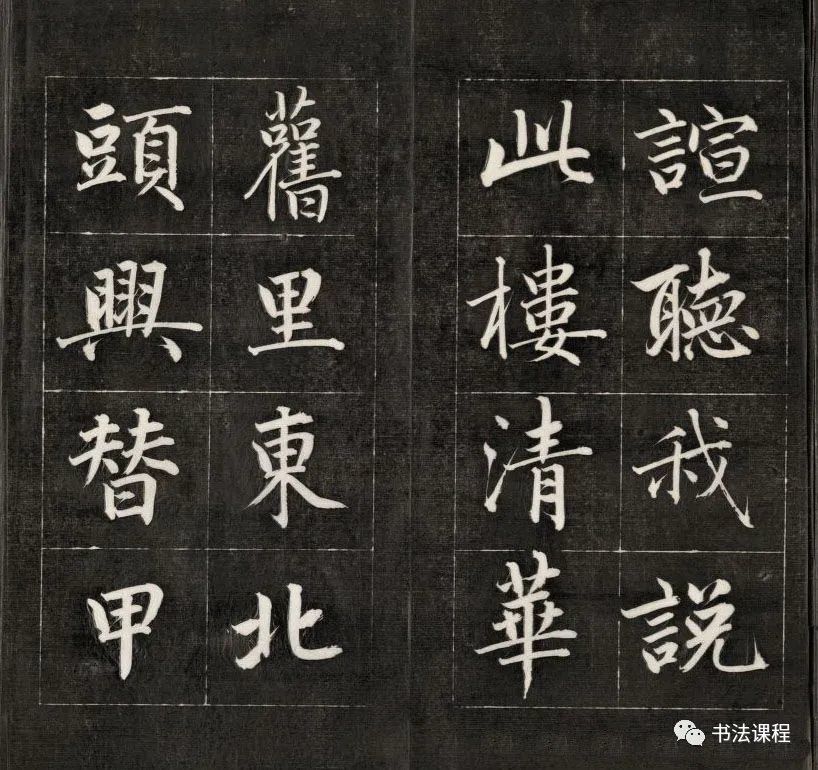 諠聽我説
此樓清華
舊里東北
頭興替甲
书法课程